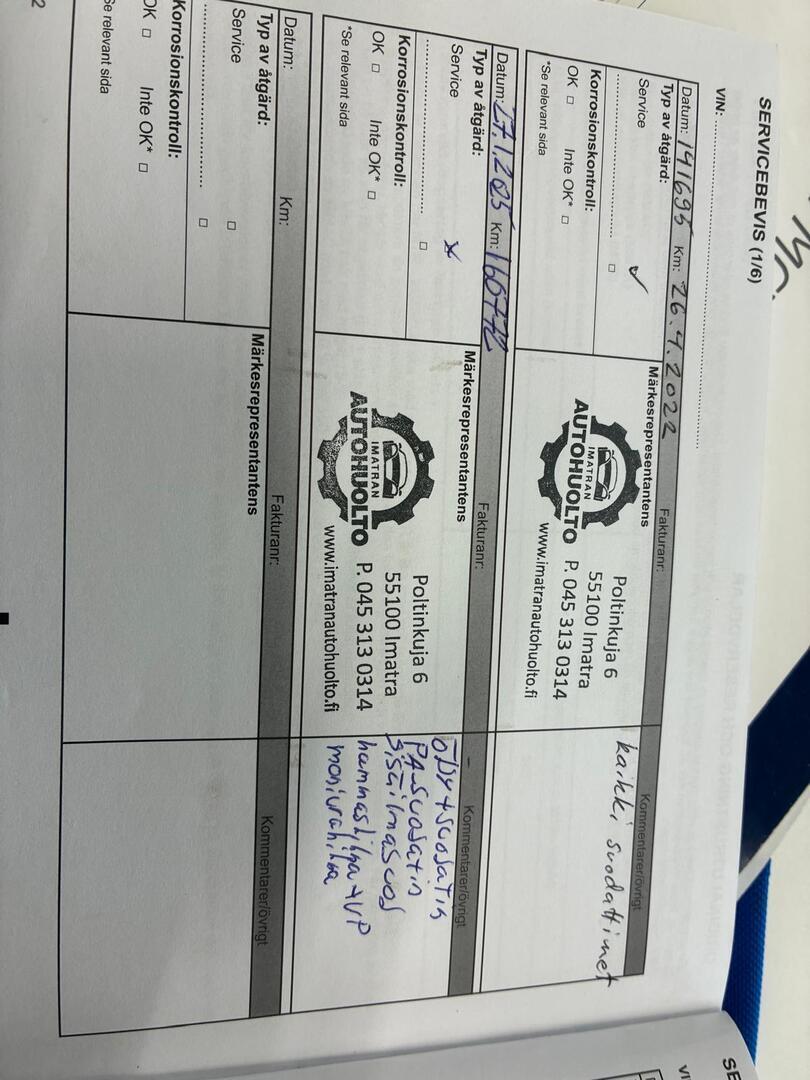 SERVICEBEVIS (1/6)
VIN: ........................................
Datum: 141695 Km: 26.4.2022 Fakturanr: Kommentarer/övrigt
Typ av åtgärd:
Service ✓
........................ □
Korrosionskontroll:
OK □ Inte OK* □
*Se relevant sida
Märkesrepresentantens
IMATRAN
AUTOHUOLTO
Poltinkuja 6
55100 Imatra
P. 045 313 0314
www.imatranautohuolto.fi
kaikki suodattimet
Datum: 27.1.2025 Km: 160772 Fakturanr: Kommentarer/övrigt
Typ av åtgärd:
Service x
........................ □
Korrosionskontroll:
OK □ Inte OK* □
*Se relevant sida
Märkesrepresentantens
IMATRAN
AUTOHUOLTO
Poltinkuja 6
55100 Imatra
P. 045 313 0314
www.imatranautohuolto.fi
ÖLJY+suodatin
PA-suodatin
sisäilmasuod
hammashihna+VP
moniurahihna
Datum: Km: Fakturanr: Kommentarer/övrigt
Typ av åtgärd:
Service □
........................ □
Korrosionskontroll:
OK □ Inte OK* □
Se relevant sida
Märkesrepresentantens
2
SE
VI